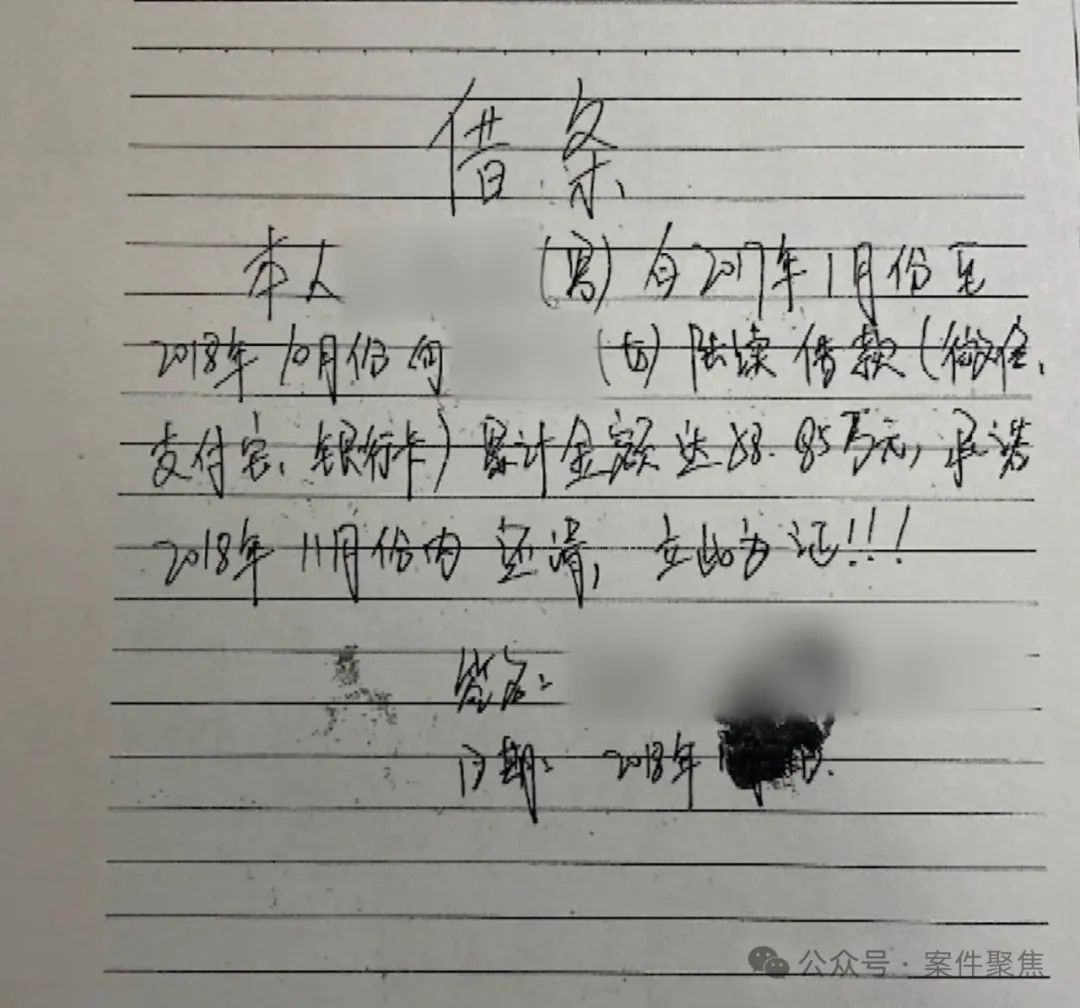 借条
本人 (男) 自2017年1月份至
2018年10月份向 (女) 陆续借款(微信、
支付宝、银行卡) 累计金额达 .85万元,承诺
2018年11月份内还清,立此为证!!!
签名:
日期: 2018年
公众号 · 案件聚焦